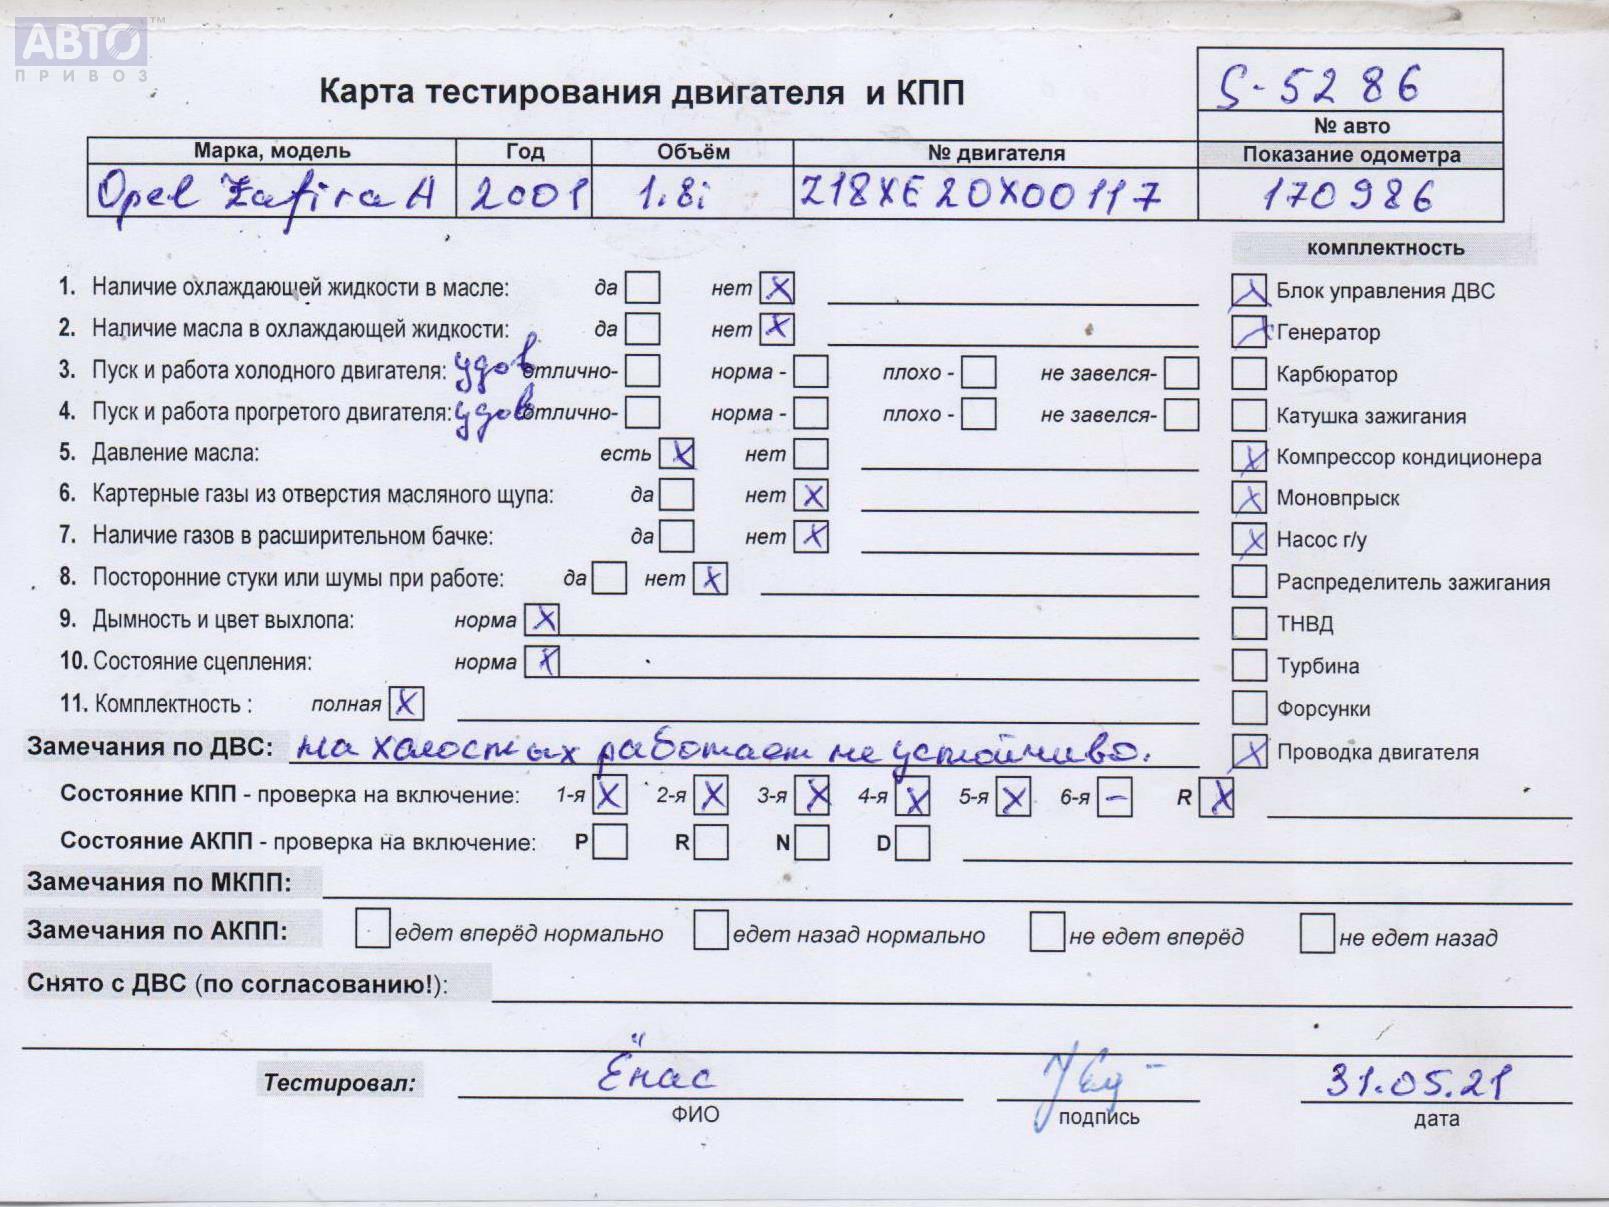 АВТО™
ПРИВОЗ
Карта тестирования двигателя и КПП
S-5286
№ авто
Марка, модель Год Объём № двигателя Показание одометра
Opel Zafira A 2001 1.8i Z18XE20X00117 170986
комплектность
1. Наличие охлаждающей жидкости в масле: да нет X Блок управления ДВС
2. Наличие масла в охлаждающей жидкости: да нет X Генератор
3. Пуск и работа холодного двигателя: удов отлично- норма - плохо - не завелся- Карбюратор
4. Пуск и работа прогретого двигателя: удов отлично- норма - плохо - не завелся- Катушка зажигания
5. Давление масла: есть X нет X Компрессор кондиционера
6. Картерные газы из отверстия масляного щупа: да нет X X Моновпрыск
7. Наличие газов в расширительном бачке: да нет X X Насос г/у
8. Посторонние стуки или шумы при работе: да нет X Распределитель зажигания
9. Дымность и цвет выхлопа: норма X ТНВД
10. Состояние сцепления: норма X Турбина
11. Комплектность : полная X Форсунки
Замечания по ДВС: на холостых работает не устойчиво. X Проводка двигателя
Состояние КПП - проверка на включение: 1-я X 2-я X 3-я X 4-я X 5-я X 6-я – R X
Состояние АКПП - проверка на включение: P R N D
Замечания по МКПП:
Замечания по АКПП: едет вперёд нормально едет назад нормально не едет вперёд не едет назад
Снято с ДВС (по согласованию!):
Тестировал: Ёнас 31.05.21
ФИО подпись дата